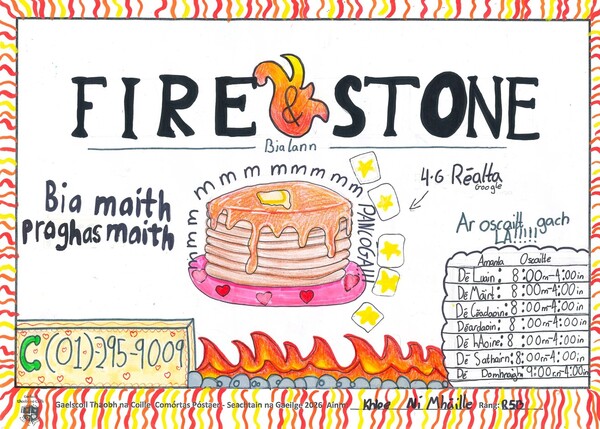 FIRE & STONE
Bialann
Bia maith
praghas maith
mmmmmmmmmm
PANCÓGA!!!
4.6 Réalta
Google
Ar oscailt gach
LÁ!!!!!
Amanta Oscailte
Dé Luain: 8:00m-4:00in
Dé Máirt: 8:00m-4:00in
Dé Céadaoin: 8:00m-4:00in
Déardaoin: 8:00m-4:00in
Dé hAoine: 8:00m-4:00in
Dé Sathairn: 8:00m-4:00in
Dé Domhnaigh: 9:00m-4:00in
(01) 295-9009
Gaelscoil Thaobh na Coille- Comórtas Póstaer- Seachtain na Gaeilge 2026 Ainm: Khloe Ní Mháille Rang: R5B